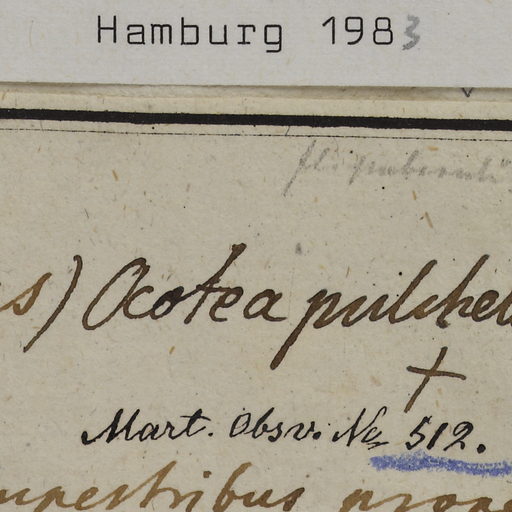 Hamburg 1983
s) Ocotea pulchel
Mart. Obsv. No 512.
upestribus prope